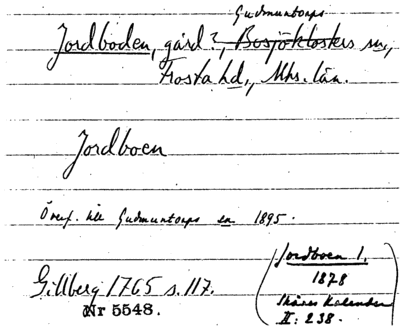 Gudmuntorps
Jordboden, gård?, Bosjöklosters sn,
Frosta hd., Mhs. län.
Jordboen
Överf. till Gudmuntorps sn 1895.
Gillberg 1765 s. 117.
Nr 5548.
Jordboen 1.
1878
Skånes Kalender
II: 238.